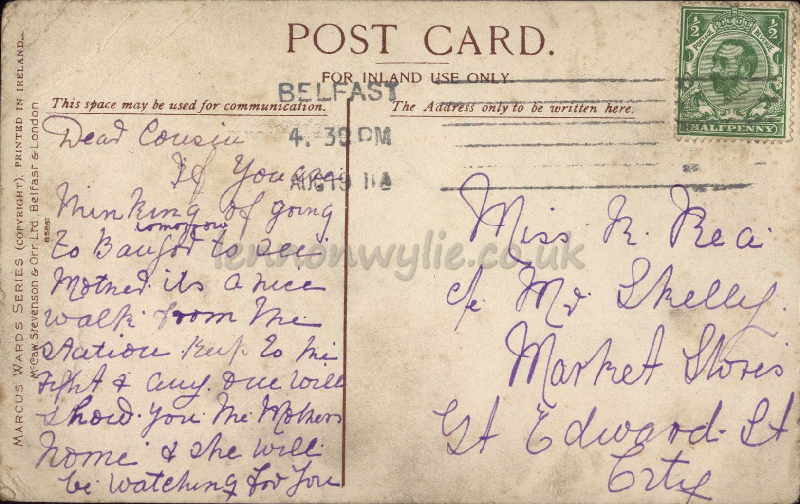 POST CARD.
FOR INLAND USE ONLY
This space may be used for communication.
The Address only to be written here.
BELFAST
4. 30 PM
AUG 19 11
½ ½
HALFPENNY
MARCUS WARDS SERIES (COPYRIGHT), PRINTED IN IRELAND.
McCaw, Stevenson & Orr, Ltd, Belfast & London
Dear Cousin
If you are
thinking of going
tomorrow
to Bangor to see
Mother its a nice
walk from the
Station keep to the
right & any one will
show you the Mothers
home & she will
be watching for you
Miss K. Rea
c/o Mr Skelly
Market Stores
Gt Edward St
City
lennonwylie.co.uk